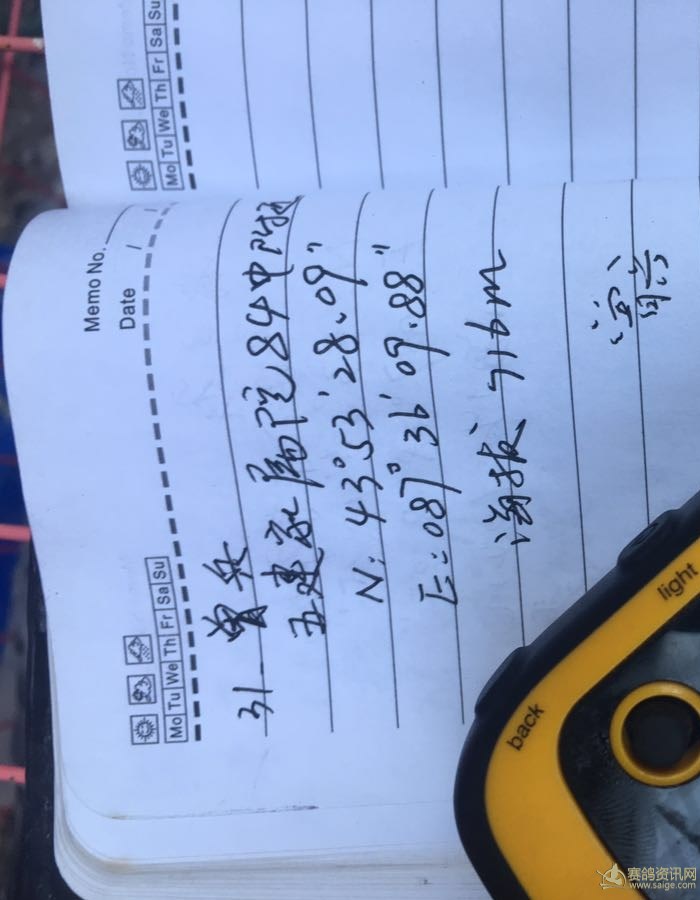 Mo Tu We Th Fr Sa Su
Mo Tu We Th Fr Sa Su
Memo No.
Date / /
31 曾兵
五建家属院84中附近
N: 43°53′28.09″
E: 087°36′09.88″
海拔 716m
back
light
赛鸽资讯网
www.saige.com